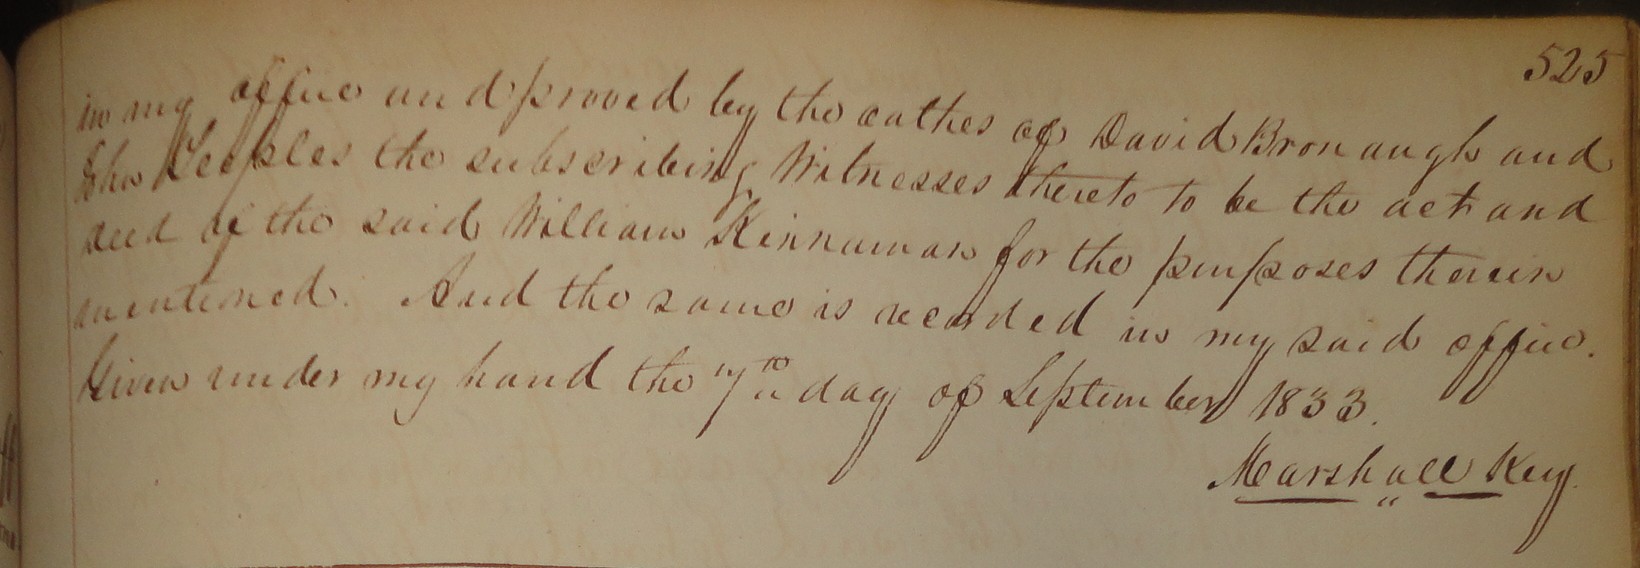 525
in my office and proved by the oathes of David Bronaugh and
John Peebles the subscribing Witnesses thereto to be the act and
deed of the said William Kinnaman for the purposes therein
mentioned. And the same is recorded in my said office.
Given under my hand the 7th day of September 1833.
Marshall Key